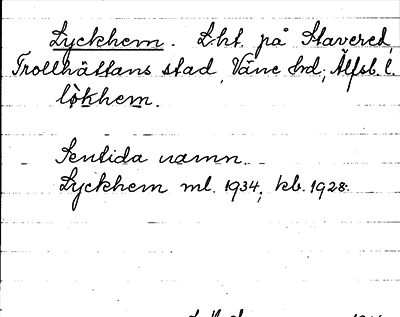 Lyckhem. Lht. på Stavered,
Trollhättans stad, Väne hd; Älfsb. l.
lỳkhem.
Sentida namn.
Lyckhem ml. 1934, kb. 1928.